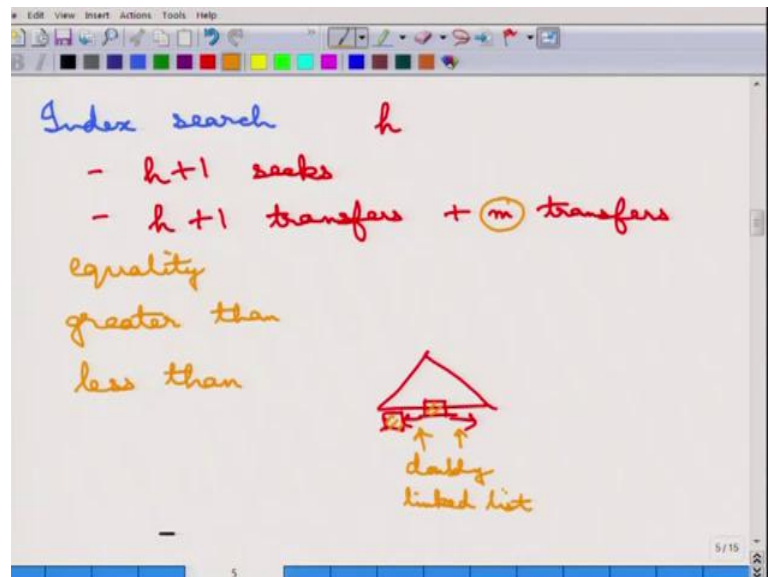 Edit View Insert Actions Tools Help
Index search h
- h+1 seeks
- h+1 transfers + m transfers
equality
greater than
less than
doubly
linked list
5/15
5